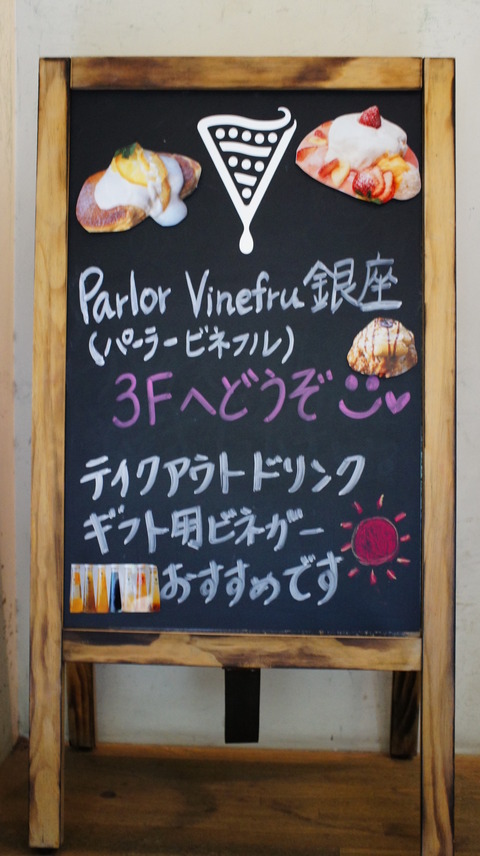 Parlor Vinefru銀座
(パーラービネフル)
3Fへどうぞ
テイクアウトドリンク
ギフト用ビネガー
おすすめです